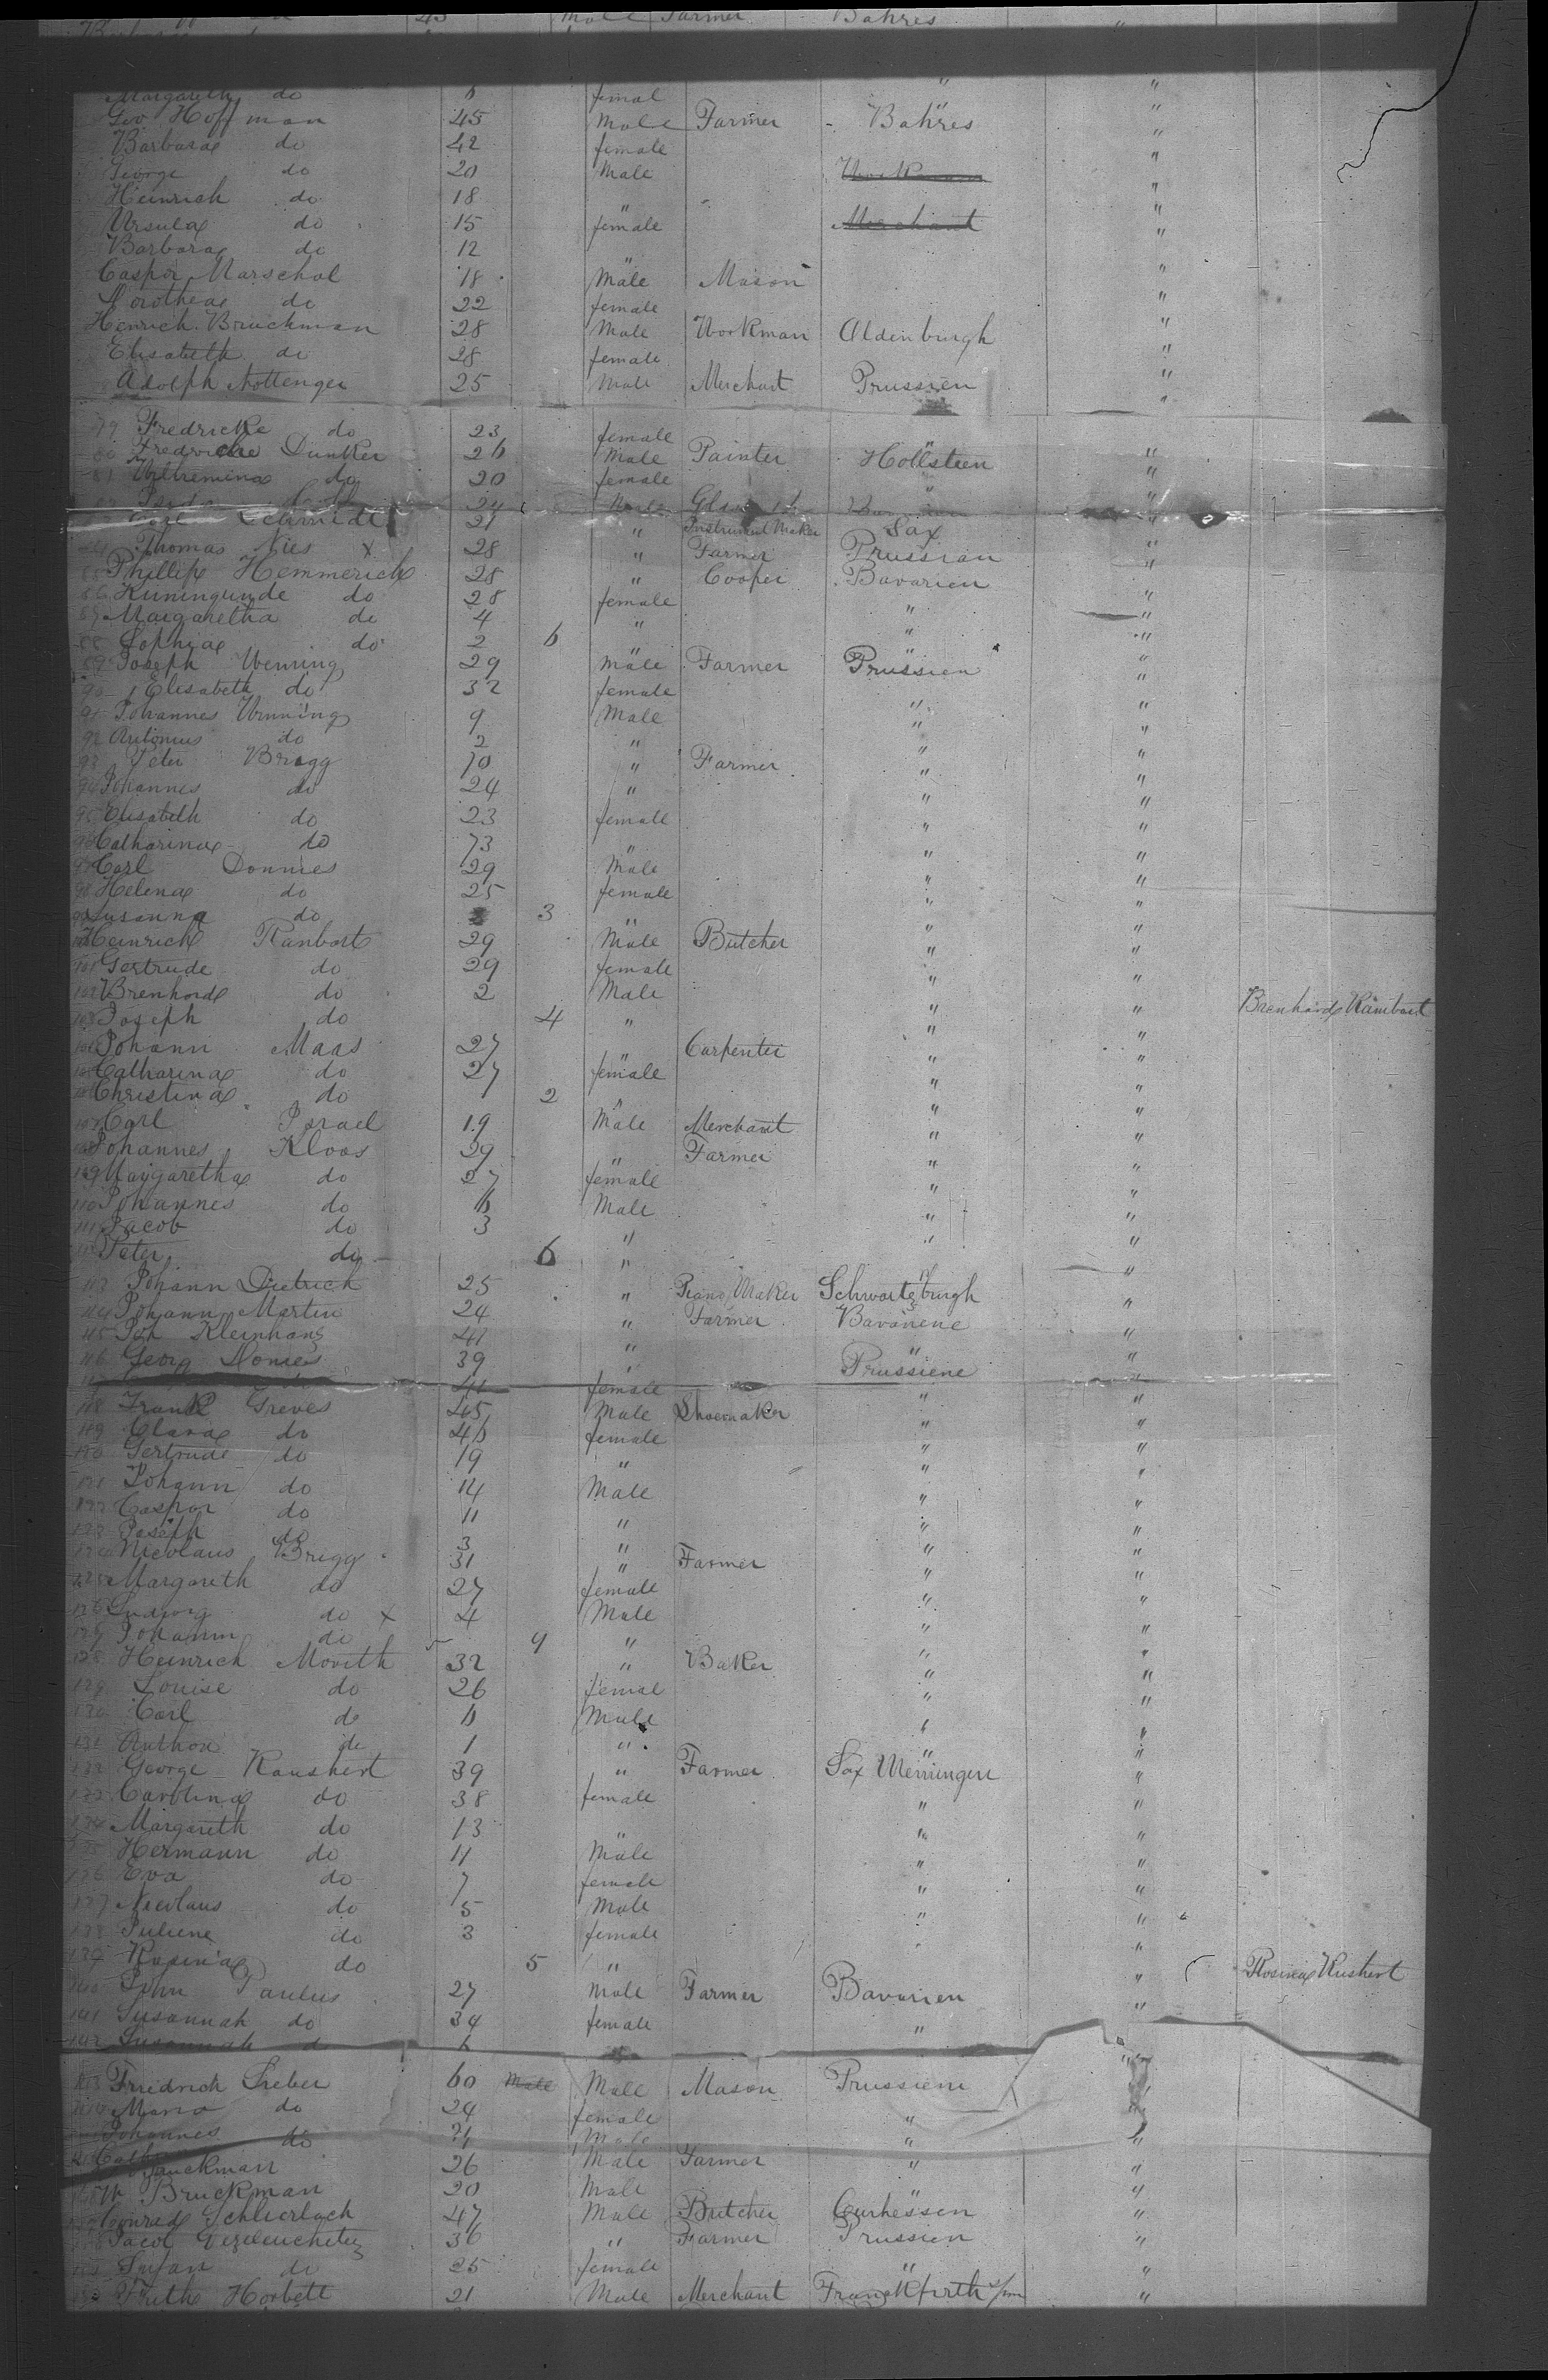 45 male Farmer Bahres "
Margareth do 6 femal " "
Geo Hoffman 45 Male Farmer - Bahres "
Barbara do 42 female "
George do 20 Male Workman "
Heinrich do 18 " "
Ursula do 15 female Merchant "
Barbara do 12 " "
Caspor Marschal 18 Male Mason "
Dorothea do 22 female "
Henrich Bruckman 28 Male Workman Oldenburgh "
Elisabeth do 28 female "
Adolph Nottenger 25 Male Merchant Prussien "
79 Fredricke do 23 female "
80 Fredricke Dunker 26 Male Painter Hollsteen "
81 Wilhemina do 20 female " "
24 Male "
Carl Schmidt 21 " Instrument Maker Sax "
84 Thomas Nies x 28 " Farmer Prussian "
85 Phillip Hemmerich 28 " Cooper Bavarien "
86 Kuningunde do 28 female " "
87 Margaretha do 4 " " "
88 Sophia do 2 6 " " "
89 Joseph Wenning 29 Male Farmer Prussien "
90 Elisabeth do 32 female " "
91 Johannes Wenning 9 Male " "
92 Antonius do 2 " " "
93 Peter Brogg 70 " Farmer " "
94 Johannes do 24 " " "
95 Elisabeth do 23 female " "
96 Catharina do 73 " " "
97 Carl Donnies 29 Male " "
98 Helena do 25 female " "
99 Susanna do 3 " " "
100 Heinrich Ranbort 29 Male Butcher " "
101 Gertrude do 29 female " "
102 Brenhord do 2 Male " "
103 Joseph do 4 " " " Brenhard Rambort
104 Johann Maas 27 Carpenter " "
105 Catharina do 27 female " "
106 Christina do 2 " " "
107 Carl Israel 19 Male Merchant " "
108 Johannes Kloos 29 " Farmer " "
109 Margaretha do 27 female " "
110 Johannes do 6 Male " "
111 Jacob do 3 " " "
112 Peter do 6 " " "
113 Johann Dietrich 25 " Piano Maker Schwortzburgh "
114 Johann Martin 24 " Farmer Bavariene "
115 Joh Kleinhans 41 " " "
116 Georg Donies 39 " Prussiene "
41 female " "
118 Frank Greves 45 Male Shoemaker " "
119 Clara do 46 female " "
120 Gertrude do 19 " " "
121 Johann do 14 Male " "
122 Caspor do 11 " " "
123 Joseph do 3 " " "
124 Nicolaus Brigg 31 " Farmer " "
125 Margareth do 27 female " "
126 Ludwig do x 4 Male " "
127 Johann do 9 " " "
128 Heinrich Morith 32 " Baker " "
129 Louise do 26 femal " "
130 Carl do 6 Male " "
131 Anthon do 1 " " "
132 George Raushert 39 " Farmer Sax Meiningen "
133 Carolina do 38 female " "
134 Margareth do 13 " " "
135 Hermann do 11 Male " "
136 Eva do 7 female " "
137 Nicolaus do 5 Male " "
138 Juliene do 3 female " "
139 Rosina do 5 " " Rosina Rushert
140 John Paulus 27 Male Farmer Bavarien "
141 Susannah do 34 female " "
142 Susannah do 6
143 Friedrich Sieber 60 Male Male Mason Prussiene "
Maria do 24 female " "
Johannes do Male " "
Bruckman 26 Male Farmer " "
Bruckman 20 Male "
Conrad Schlierbach 47 Male Butcher Curhessen "
Jacob 36 " Farmer Prussien "
do 25 female " "
Horbett 21 Male Merchant Franckfurth "